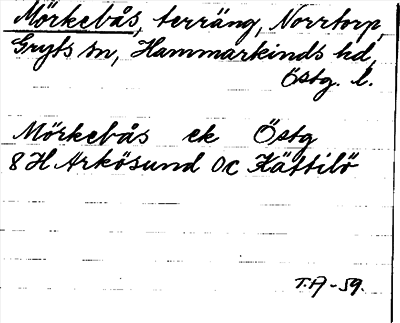 Mörkebås, terräng, Norrtorp,
Gryts sn, Hammarkinds hd,
Östg. l.
Mörkebås ek Östg
8H Arkösund 0c Kättilö
T.A-59.